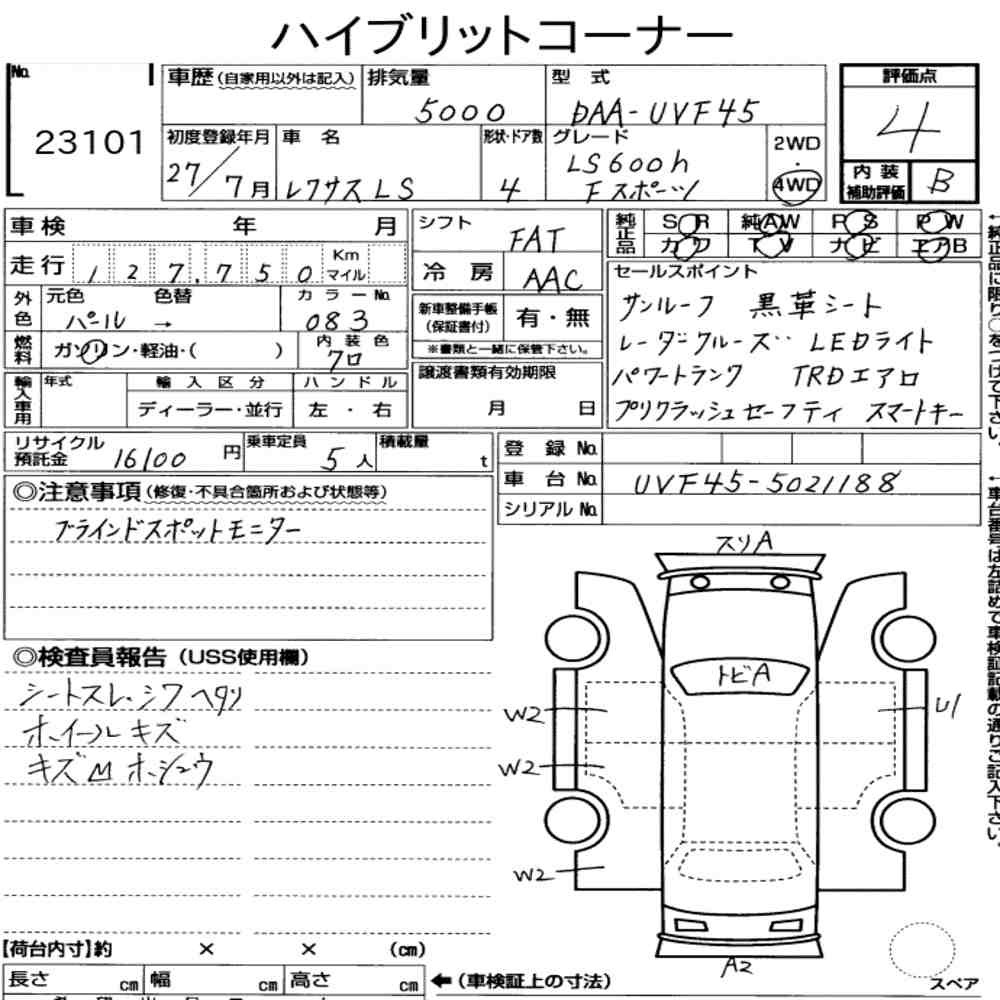 ハイブリットコーナー
No.
23101
車歴(自家用以外は記入)
排気量
5000
型 式
DAA-UVF45
評価点
4
初度登録年月
27/7月
車 名
レクサス LS
形状・ドア数
4
グレード
LS600h
Fスポーツ
2WD
・
4WD
内 装
補助評価
B
車検 年 月
シフト
FAT
純正品
SR 純AW PS PW
カワ TV ナビ エアB
走行 127,750 Km マイル
冷 房
AAC
セールスポイント
サンルーフ 黒革シート
レーダクルーズ LEDライト
パワートランク TRDエアロ
プリクラッシュセーフティ スマートキー
外色
元色 色替
パール →
カラーNo.
083
新車整備手帳
(保証書付)
有・無
※書類と一緒に保管下さい。
燃料
ガソリン・軽油・( )
内 装 色
クロ
譲渡書類有効期限
月 日
輸入車用
年式
輸 入 区 分
ディーラー・並行
ハ ン ド ル
左 ・ 右
リサイクル
預託金 16100 円
乗車定員
5 人
積載量
t
登 録 No.
車 台 No.
UVF45-5021188
シリアル No.
◎注意事項(修復・不具合箇所および状態等)
ブラインドスポットモニター
◎検査員報告(USS使用欄)
シートスレ・シワ ヘタリ
ホイールキズ
キズ M ホシュウ
スリA
トビA
W2
U1
W2
W2
A2
スペア
【荷台内寸】約 × × (cm)
長さ cm 幅 cm 高さ cm
←(車検証上の寸法)
←純正品に限り○をつけて下さい。
←車台番号は左詰めて車検証記載の通りご記入下さい。